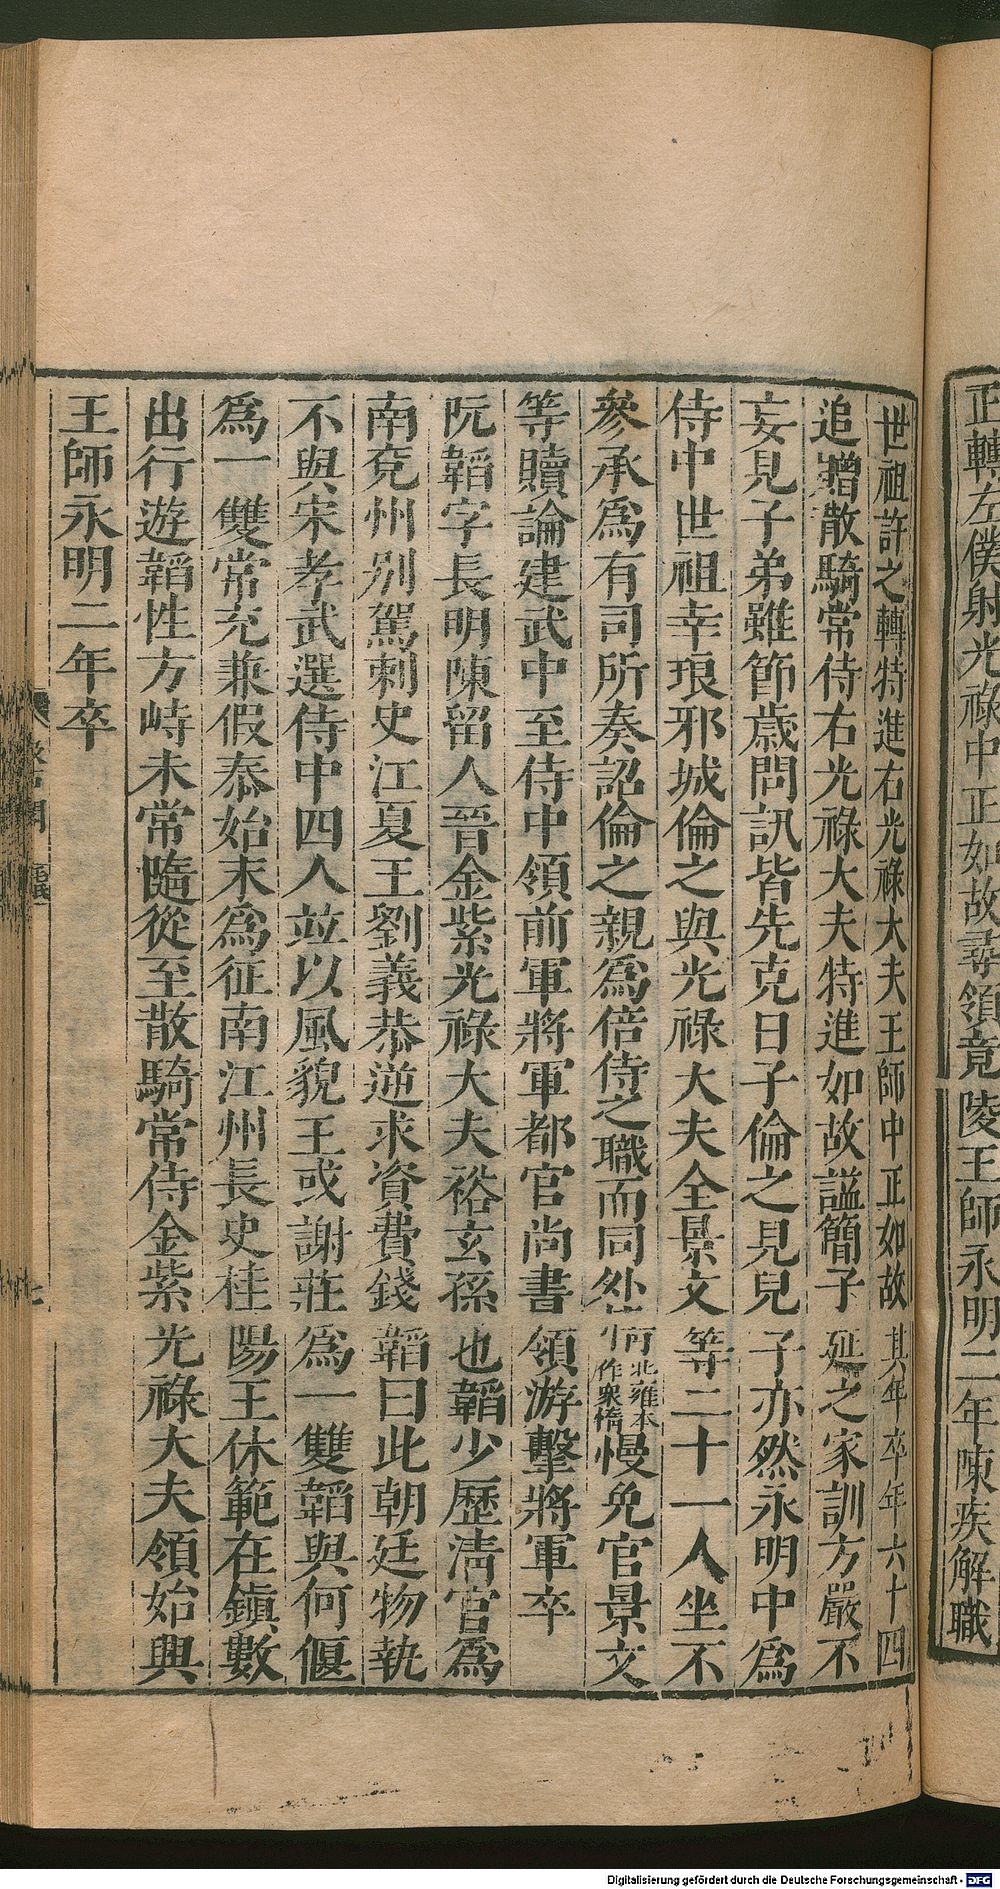 正轉左僕射光祿中正如故尋領竟陵王師永明二年陳疾解職
世祖許之轉特進右光祿大夫王師中正如故其年卒年六十四
追贈散騎常侍右光祿大夫特進如故諡簡子延之家訓方嚴不
妄見子弟雖節歲問訊皆先克日子倫之見兒子亦然永明中爲
侍中世祖幸琅邪城倫之與光祿大夫全景文等二十一人坐不
參承爲有司所奏詔倫之親爲陪侍之職而同外惰南北雍本作衆惰慢免官景文
等贖論建武中至侍中領前軍將軍都官尚書領游擊將軍卒
阮韜字長明陳留人晉金紫光祿大夫裕玄孫也韜少歷淸官爲
南兗州别駕刺史江夏王劉義恭逆求資費錢韜曰此朝廷物執
不與宋孝武選侍中四人並以風貌王彧謝莊爲一雙韜與何偃
爲一雙常充兼假泰始末爲征南江州長史桂陽王休範在鎭數
出行遊韜性方峙未常隨從至散騎常侍金紫光祿大夫領始興
王師永明二年卒
Digitalisierung gefördert durch die Deutsche Forschungsgemeinschaft - DFG